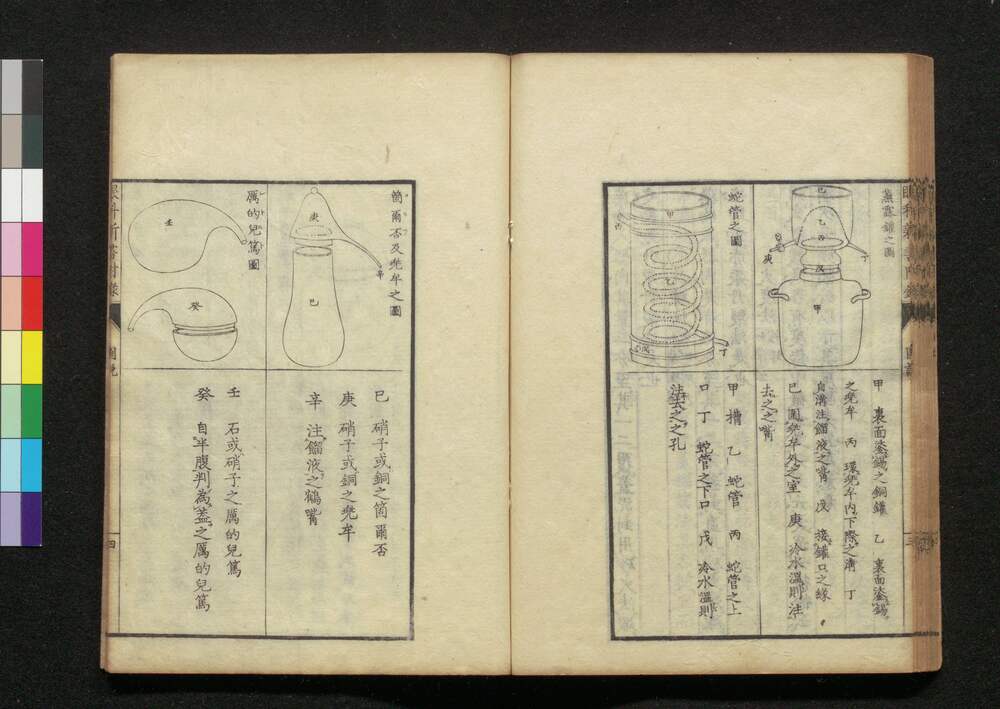 蒸露鑵之圖
己
乙
丙
丁
庚
戊
甲
甲 裏面塗錫之銅鑵 乙 裏面塗錫
之兜牟 丙 環兜牟内下際之溝 丁
自溝注餾液之嘴 戊 接鑵口之緣
己 圍兜牟外之室 庚 冷水溫則注
去之之嘴
蛇管之圖
甲
丙
乙
丁
戊
甲 槽 乙 蛇管 丙 蛇管之上
口 丁 蛇管之下口 戊 冷水溫則
注去之之孔
箇爾否及兜牟之圖
庚
辛
己
己 硝子或銅之箇爾否
庚 硝子或銅之兜牟
辛 注餾液之鶴嘴
厲的兒篤圖
壬
癸
壬 石或硝子之厲的兒篤
癸 自半腹判為蓋之厲的兒篤
圖說
四